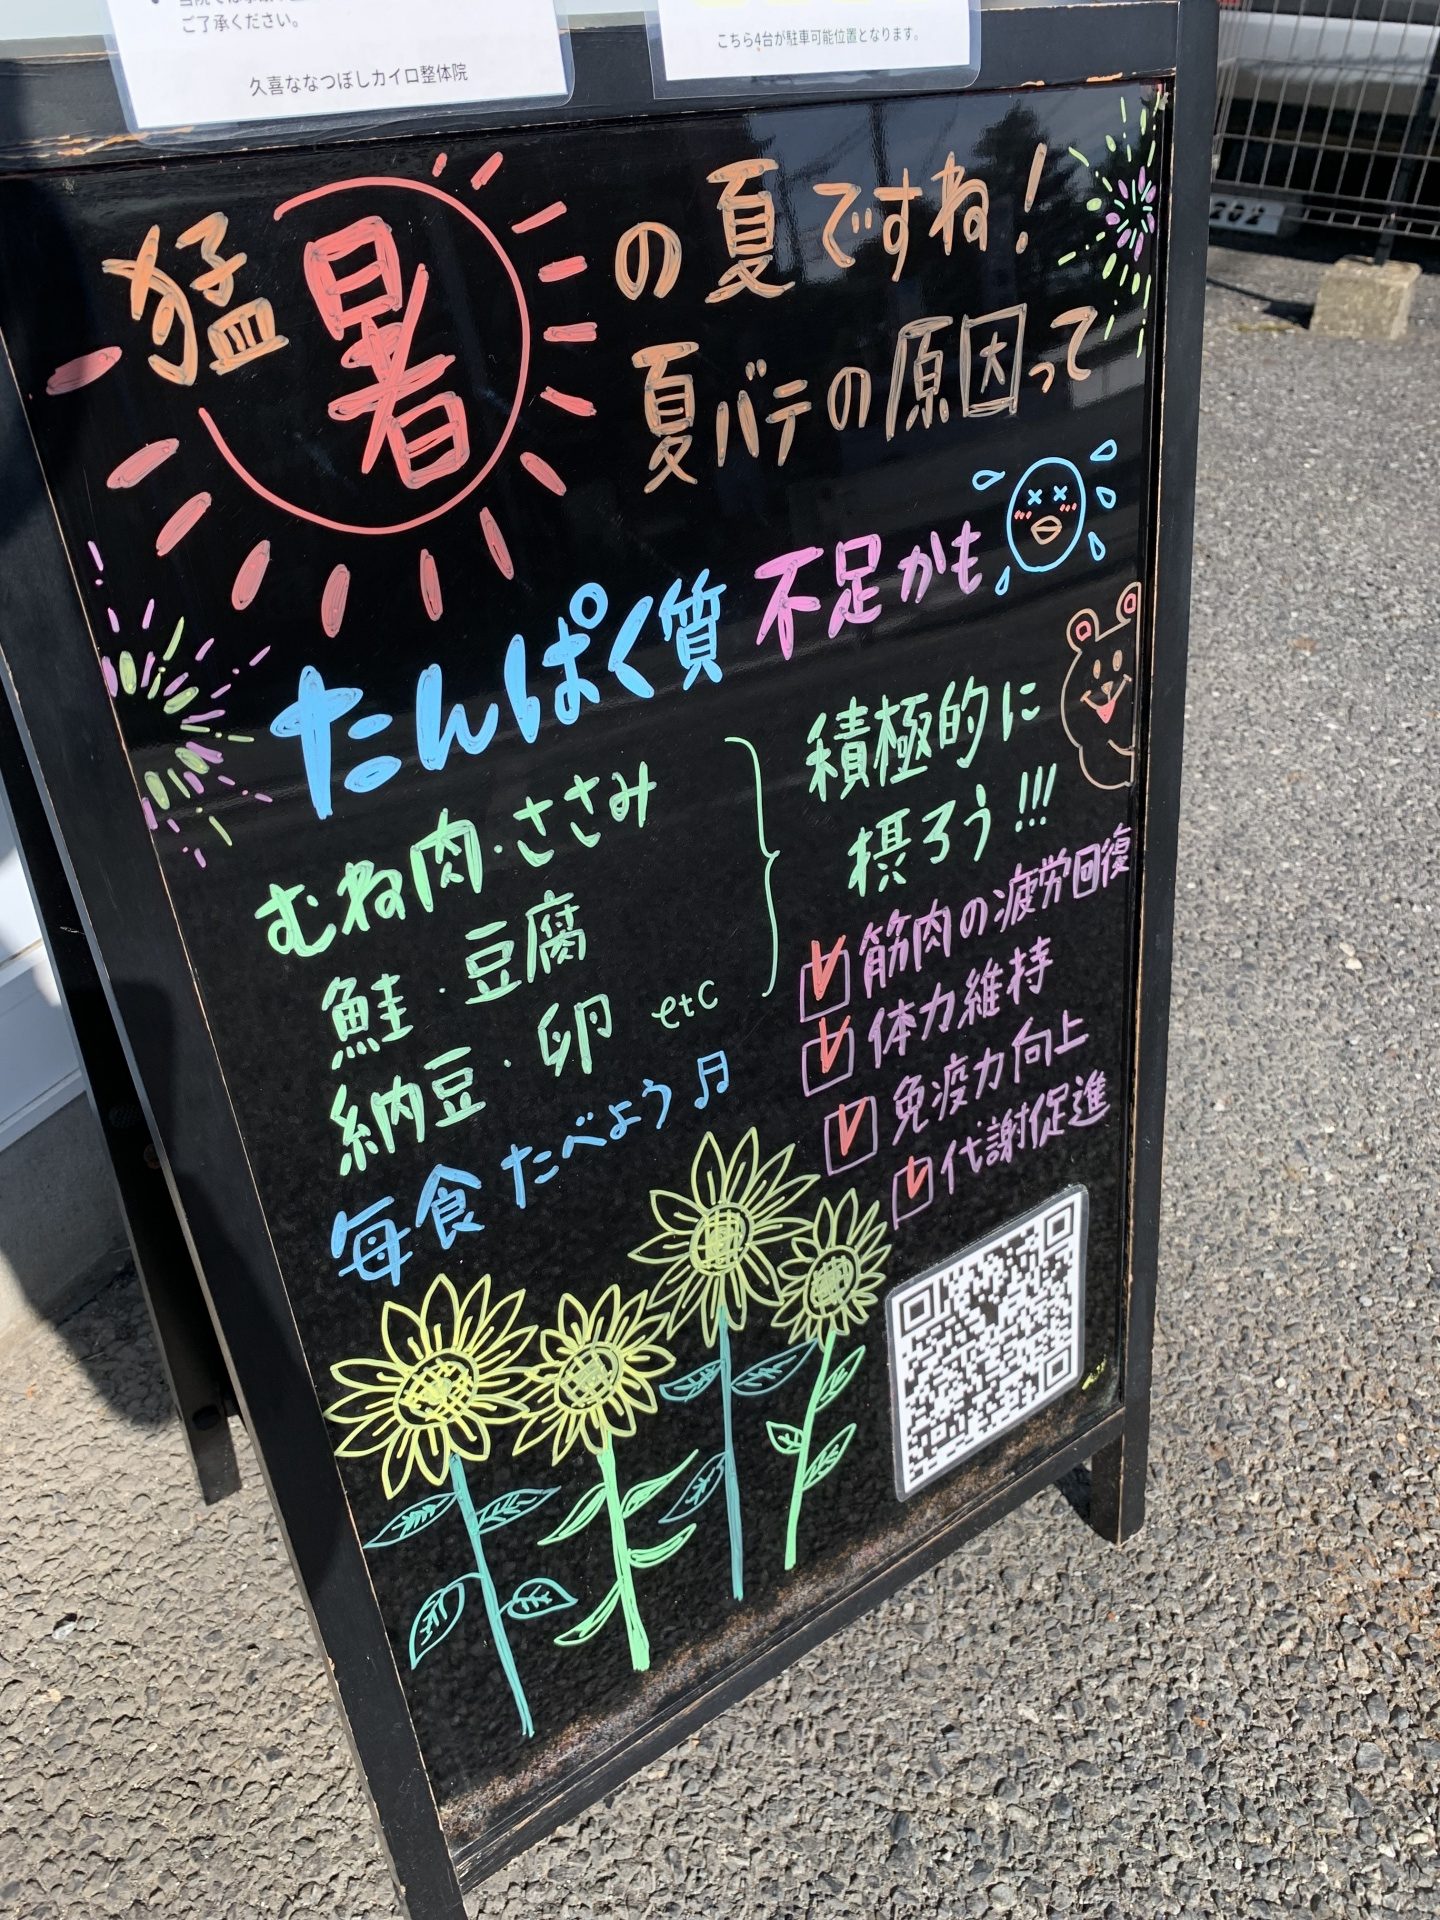 ご了承ください。
久喜ななつぼしカイロ整体院
こちら4台が駐車可能位置となります。
猛暑の夏ですね!
夏バテの原因って
たんぱく質不足かも
むね肉・ささみ
鮭・豆腐
納豆・卵 etc
毎食たべよう♬
積極的に
摂ろう!!!
筋肉の疲労回復
体力維持
免疫力向上
代謝促進
202